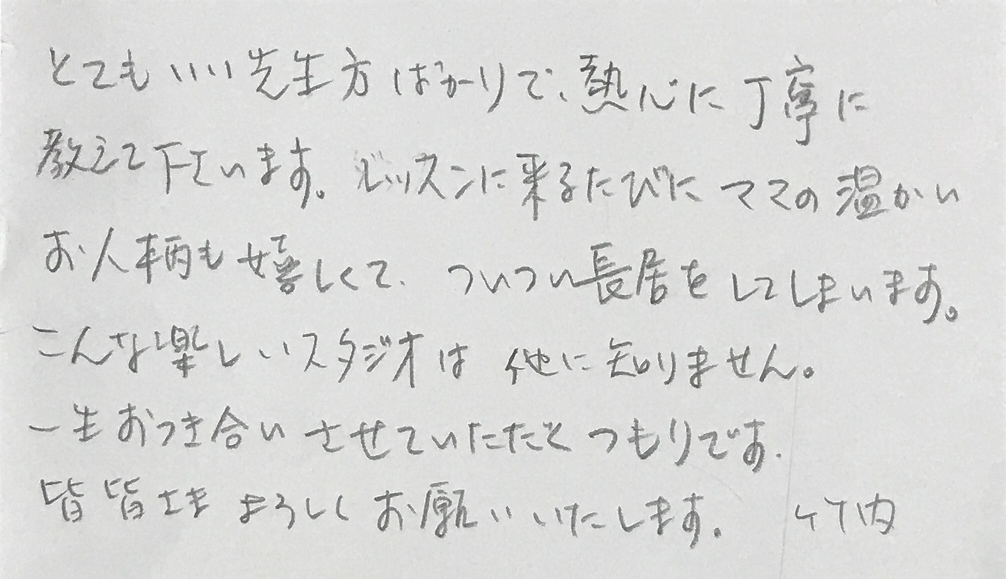 とてもいい先生方ばかりで、熱心に丁寧に
教えて下さいます。レッスンに来るたびにママの温かい
お人柄も嬉しくて、ついつい長居をしてしまいます。
こんな楽しいスタジオは他に知りません。
一生おつき合いさせていただくつもりです。
皆皆さまよろしくお願いいたします。 竹内